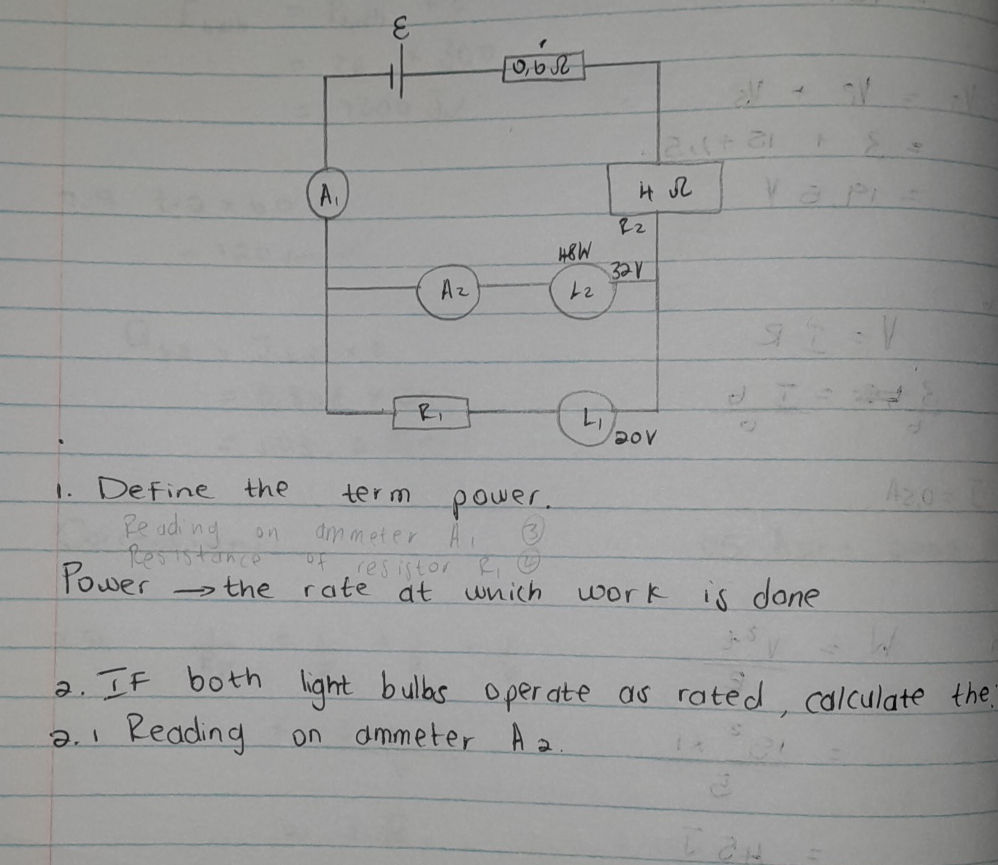 ε
0,6 Ω
A1
4 Ω
R2
48W
A2
L2
32V
R1
L1
20V
1. Define the term power.
Reading on ammeter A1 ③
Resistance of resistor R1 ④
Power → the rate at which work is done
2. IF both light bulbs operate as rated, calculate the:
2.1 Reading on ammeter A2.